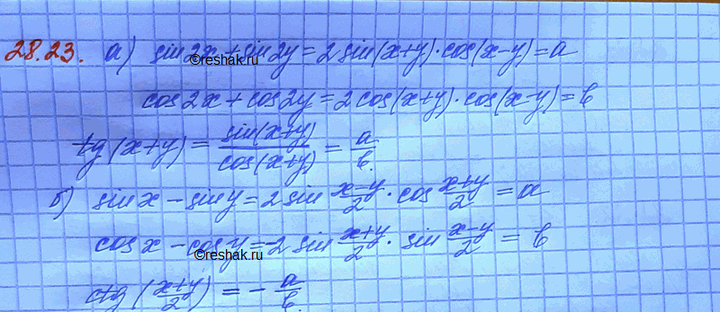 28.23. а) sin2x + sin2y = 2 sin(x+y)·cos(x-y) = a
©reshak.ru
cos2x + cos2y = 2cos(x+y)·cos(x-y) = b
tg(x+y) = sin(x+y)/cos(x+y) = a/b.
б) sinx - siny = 2 sin (x-y)/2 · cos (x+y)/2 = a
cosx - cosy = -2 sin (x+y)/2 · sin (x-y)/2 = b
©reshak.ru
ctg((x+y)/2) = - a/b.